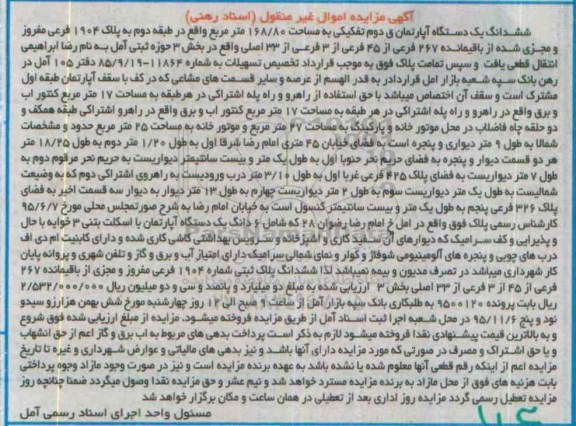 آگهی مزایده اموال غیر منقول (اسناد رهنی)
ششدانگ یک دستگاه آپارتمان ق دوم تفکیکی به مساحت ۱۶۸/۸۰ متر مربع واقع در طبقه دوم به پلاک ۱۹۰۴ فرعی مفروز
و مجزی شده از باقیمانده ۲۶۷ فرعی از ۴۵ فرعی از ۳ فرعی از ۳۳ اصلی واقع در بخش ۳ حوزه ثبتی آمل به نام رضا ابراهیمی
انتقال قطعی یافت و سپس تمامت پلاک فوق به موجب قرارداد تخصیص تسهیلات به شماره ۱۱۸۶۴-۸۵/۹/۱۹ دفتر ۱۰۵ آمل در
رهن بانک سپه شعبه بازار امل قراردادر به قدر الهسم از عرصه و سایر قسمت های مشاعی که در کف با سقف آپارتمان طبقه اول
مشترک است و سقف آن اختصاص میباشد با حق استفاده از راهرو و راه پله اشتراکی در هرطبقه به مساحت ۱۷ متر مربع کنتور اب
و برق واقع در راهرو و راه پله اشتراکی در هر طبقه به مساحت ۱۷ متر مربع کنتور اب و برق واقع در راهرو اشتراکی طبقه همکف و
دو حلقه چاه فاضلاب در محل موتور خانه و پارکینگ به مساحت ۲۷ متر مربع و موتور خانه به مساحت ۲۵ متر مربع حدود و مشخصات
شمالا به طول ۹ متر دیواری و پنجره است به فضای خیابان ۴۵ متری امام رضا شرقا اول به طول ۱/۲۰ متر دوم به طول ۱۸/۲۵ متر
هر دو قسمت دیوار و پنجره به فضای حریم نحر جنوبا اول به طول یک متر و بیست سانتیمتر دیواریست به حریم نحر مرقوم دوم به
طول ۷ متر دیواریست به فضای پلاک ۴۲۵ فرعی غربا اول به طول ۳/۱۰ متر درب ورودیست به راهروی اشتراکی دوم که به وضیعت
شمالیست به طول یک متر دیواریست سوم به طول ۲ متر دیواریست چهارم به طول ۱۳ متر دیوار به دیوار سه قسمت اخیر به فضای
پلاک ۳۲۶ فرعی پنجم به طول یک متر و بیست سانتیمتر کنسول است به خیابان امام رضا به شرح صورتمجلس محلی مورخ ۹۵/۶/۷
کارشناس رسمی پلاک فوق واقع در امل خ امام رضا رضوان ۲۸ که شامل ششدانگ یک دستگاه آپارتمان با اسکلت بتنی ۳ خوابه با حال
و پذیرایی و کف سرامیک که دیوارهای آن سفید کاری و آشپزخانه و سرویس بهداشتی کاشی کاری شده و دارای کابینت ام دی اف
درب های چوبی و پنجره های آلومینیومی شوفاژ و کولر و نمای شمالی سرامیک دارای امتیاز آب و برق و گاز و تلفن شهری و پروانه پایان
کار شهرداری میباشد در تصرف مدیون و بیمه نمیباشد لذا ششدانگ پلاک ثبتی شماره ۱۹۰۴ فرعی مفروز و مجزی از باقیمانده ۲۶۷
فرعی از ۴۵ از ۳ فرعی از ۳۳ اصلی بخش ۳ ارزیابی شده به مبلغ دو میلیارد و پانصد و سی و دو میلیون ریال ۲/۵۳۲/۰۰۰/۰۰۰
ریال بابت پرونده ۹۵۰۰۱۲۰ به طلبکاری بانک سپه بازار آمل از ساعت ۹ صبح الی ۱۲ روز چهارشنبه مورخ شش بهمن هزارو سیصدو
نود و پنج ۹۵/۱۱/۶ در محل شعبه اجرا ثبت اسناد آمل از طریق مزایده فروخته میشود. مزایده از مبلغ ارزیابی شده فوق شروع
و به بالاترین قیمت پیشنهادی نقدا فروخته میشود لازم به ذکر است پرداخت بدهی های مربوط به اب برق و گاز اعم از حق انشهاب
و یا حق اشتراک و مصرف در صورتی که مورد مزایده دارای آنها باشد و نیز بدهی های مالیاتی و عوارض شهرداری و غیره تا تاریخ
مزایده اعم از اینکه رقم قطعی آنها معلوم شده یا نشده باشد به عهده برنده مزایده است و نیز در صورت وجود مازاد وجوه پرداختی
بابت هزینه های فوق از محل مازاد به برنده مزایده مسترد خواهد شد و نیم عشر و حق مزایده نقدا وصول میگردد ضمنا چنانچه روز
مزایده تعطیل رسمی گردد مزایده روز اداری بعد از تعطیلی در همان ساعت و مکان برگزار خواهد شد
مسئولِ واحد اجرای اسناد رسمی آمل